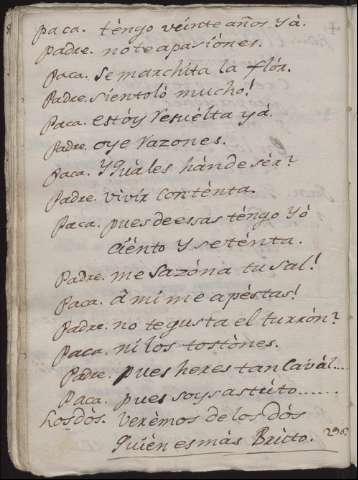 paca. téngo véinte años yá.
Padre. no te apasiónes.
Paca. Se marchita la flór.
Padre. sientoló mucho!
Paca. estóy resuélta yá.
Padre. oye razones.
Paca. Y Quáles hánde sér?
Padre. vivír conténta.
Paca. pues de esas téngo yó
ciénto Y seténta.
Padre. me sazóna tu sal!
Paca. á mi me apéstas!
Padre. no te gusta el turrón?
Paca. ni los tostónes.
Padre. pues heres tan Cavál...
Paca. pues soy sastrito......
Los dós. verémos de los dós
Quién es más Britto.